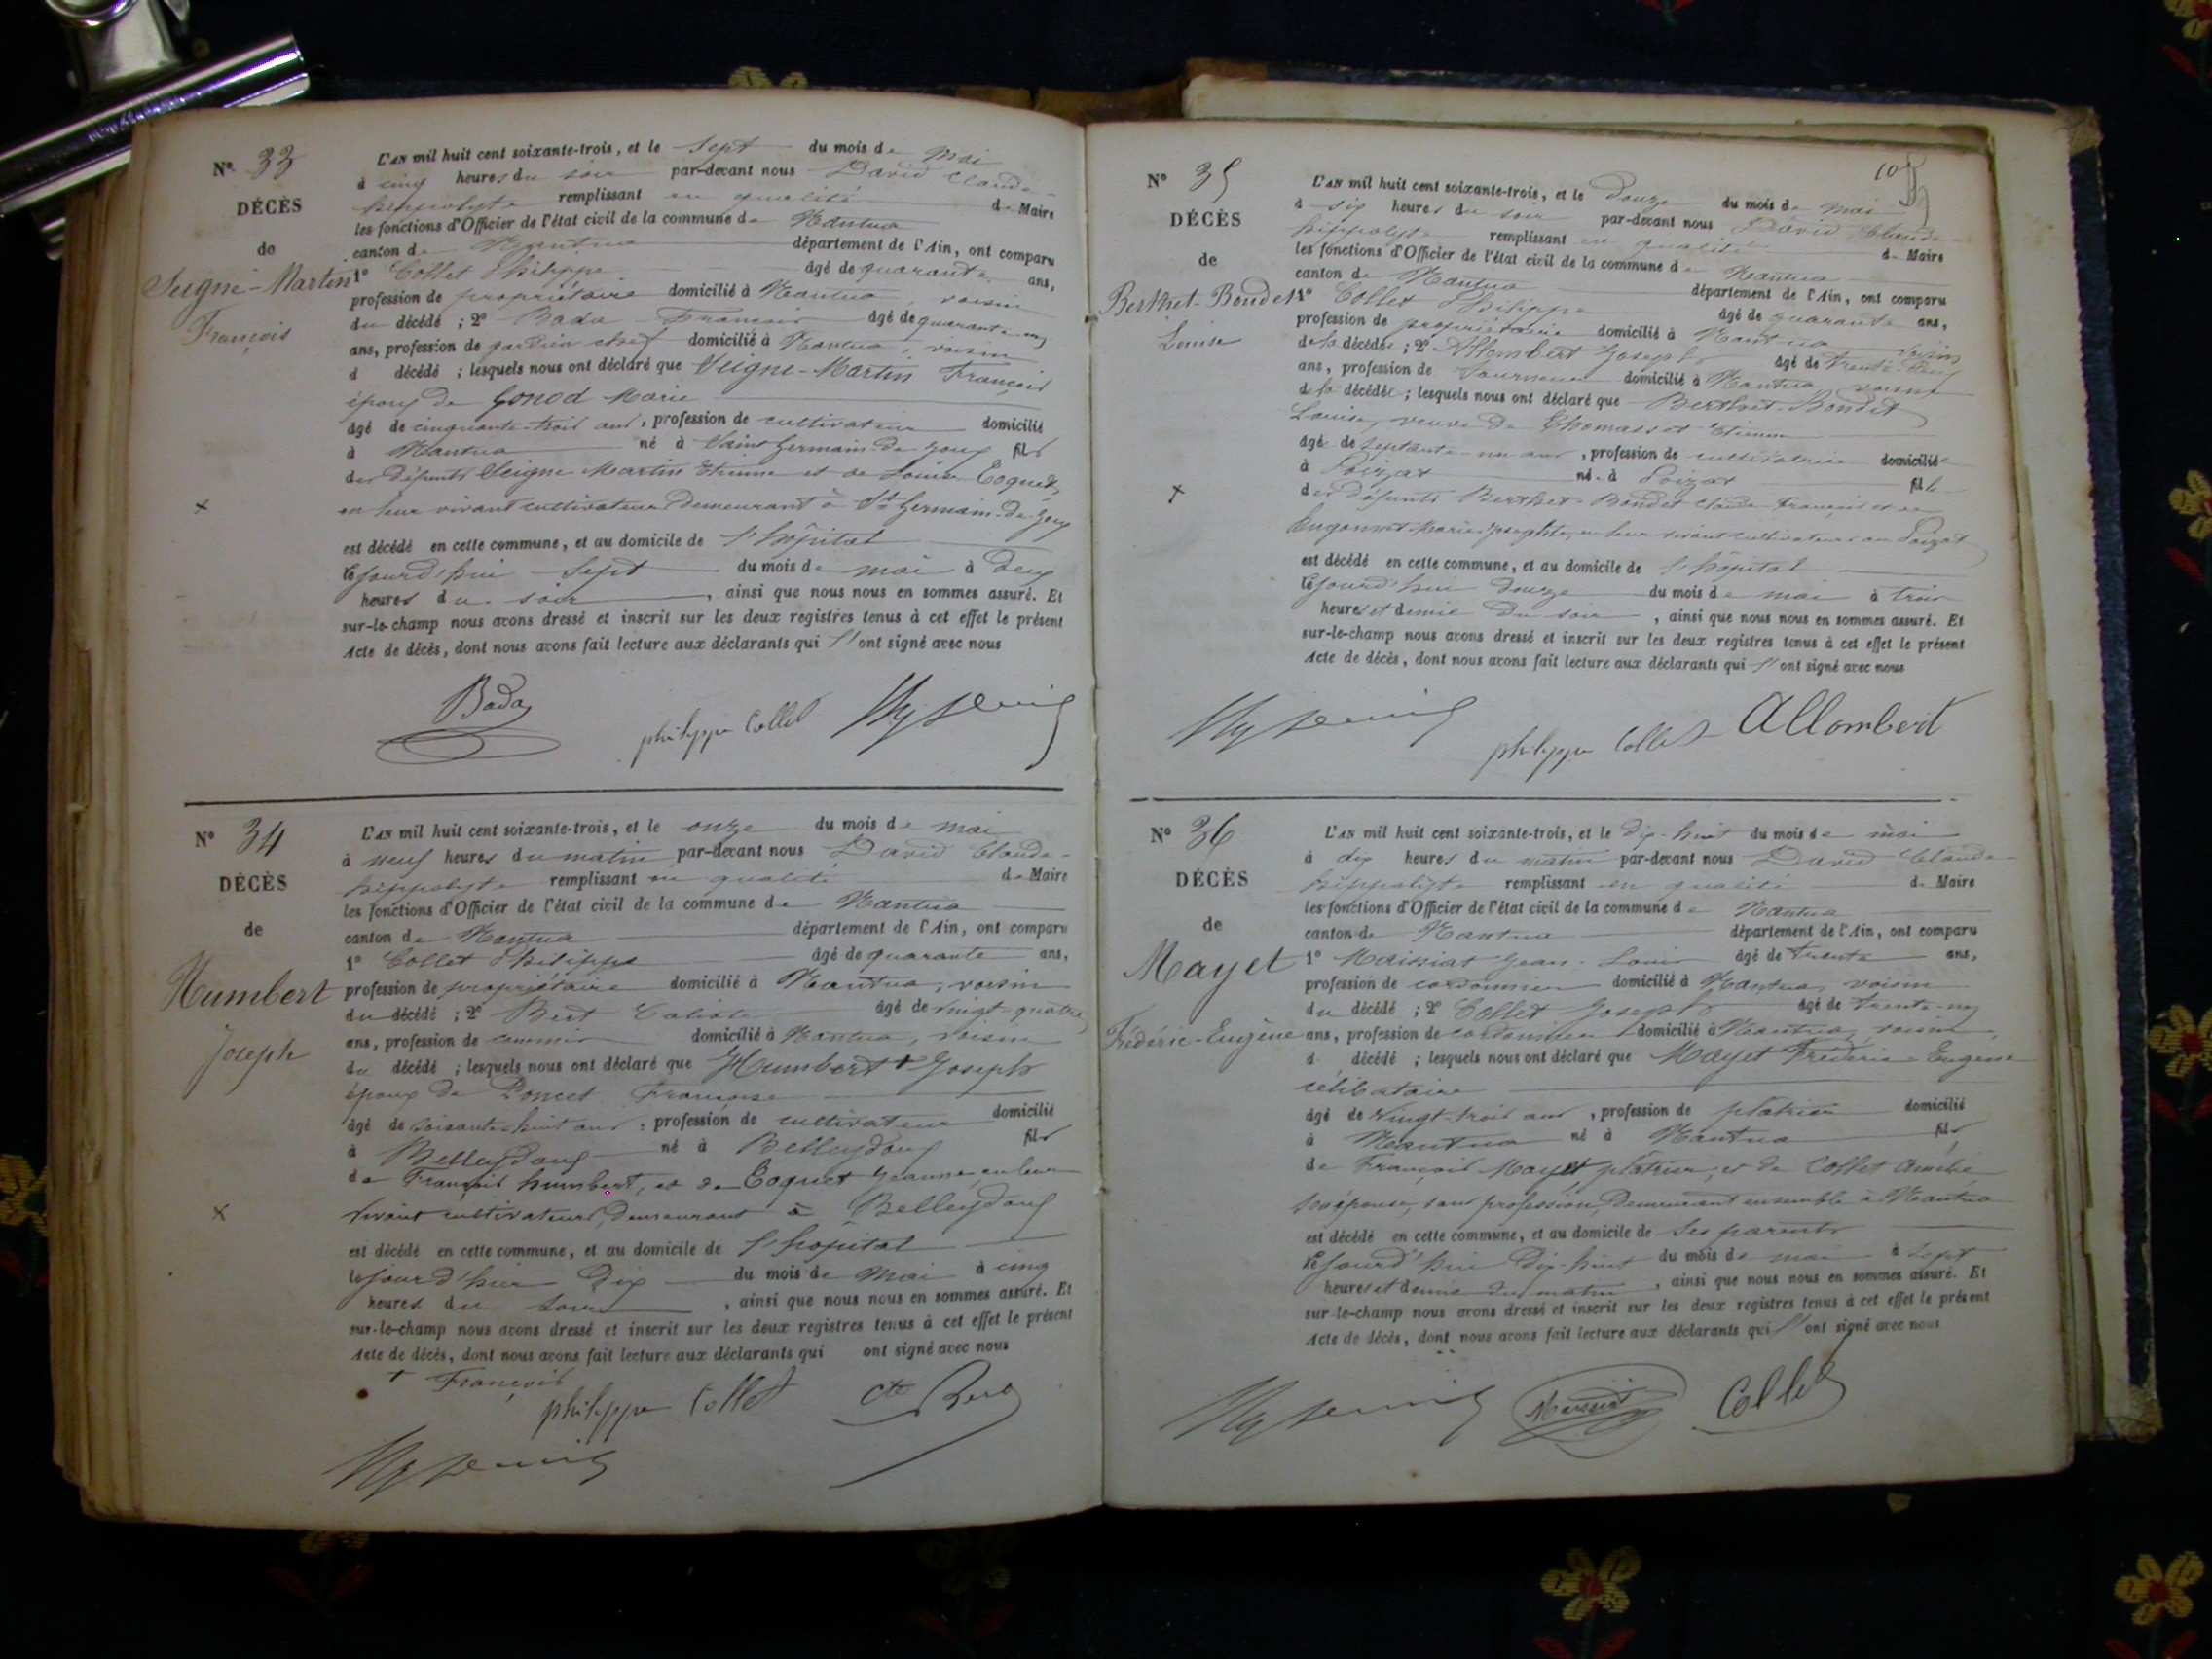 N° 33
DÉCÈS
de
Seigne-Martin
François
L'AN mil huit cent soixante-trois, et le sept du mois de mai
à cinq heures du soir par-devant nous David Claude-
hippolyte remplissant en qualité de Maire
les fonctions d'Officier de l'état civil de la commune de Nantua
canton de Nantua département de l'Ain, ont comparu
1° Collet Philippe âgé de quarante ans,
profession de propriétaire domicilié à Nantua, voisin
du décédé ; 2° Bada François âgé de quarante-un
ans, profession de gardien chef domicilié à Nantua, voisin
d décédé ; lesquels nous ont déclaré que Seigne-Martin François
époux de Gonod Marie
âgé de cinquante-trois ans, profession de cultivateur domicilié
à Nantua né à Saint Germain-de-Joux fils
des défunts Seigne-Martin Etienne et de Louise Coquet,
en leur vivant cultivateurs demeurant à St Germain-de-Joux
est décédé en cette commune, et au domicile de l'hôpital
cejourd'hui sept du mois de mai à deux
heures du soir, ainsi que nous nous en sommes assuré. Et
sur-le-champ nous avons dressé et inscrit sur les deux registres tenus à cet effet le présent
Acte de décès, dont nous avons fait lecture aux déclarants qui l'ont signé avec nous
Bada philippe Collet
N° 34
DÉCÈS
de
Humbert
Joseph
L'AN mil huit cent soixante-trois, et le onze du mois de mai
à neuf heures du matin par-devant nous David Claude-
hippolyte remplissant en qualité de Maire
les fonctions d'Officier de l'état civil de la commune de Nantua
canton de Nantua département de l'Ain, ont comparu
1° Collet Philippe âgé de quarante ans,
profession de propriétaire domicilié à Nantua, voisin
du décédé ; 2° Bert Calixte âgé de vingt-quatre
ans, profession de commis domicilié à Nantua, voisin
du décédé ; lesquels nous ont déclaré que Humbert + Joseph
époux de Poncet Françoise
âgé de soixante-huit ans, profession de cultivateur domicilié
à Belleydoux né à Belleydoux fils
de François humbert, et de Coquet Jeanne, en leur
vivant cultivateurs, demeurant à Belleydoux
est décédé en cette commune, et au domicile de l'hôpital
le jour d'hier dix du mois de mai à cinq
heures du soir, ainsi que nous nous en sommes assuré. Et
sur-le-champ nous avons dressé et inscrit sur les deux registres tenus à cet effet le présent
Acte de décès, dont nous avons fait lecture aux déclarants qui ont signé avec nous
+ François
philippe Collet
N° 35
DÉCÈS
de
Berthet-Bondet
Louise
L'AN mil huit cent soixante-trois, et le douze du mois de mai
à six heures du soir par-devant nous David Claude-
hippolyte remplissant en qualité de Maire
les fonctions d'Officier de l'état civil de la commune de Nantua
canton de Nantua département de l'Ain, ont comparu
1° Collet Philippe âgé de quarante ans,
profession de propriétaire domicilié à Nantua voisin
de la décédée ; 2° Allombert Joseph âgé de trente
ans, profession de Tourneur domicilié à Nantua, voisin
de la décédée ; lesquels nous ont déclaré que Berthet-Bondet
Louise, veuve de Thomasset Etienne
âgé de septante-un ans, profession de cultivatrice domicilié
à Poizat né à Poizat fille
des défunts Berthet-Bondet Claude François et de
en leur vivant cultivateurs au Poizat
est décédé en cette commune, et au domicile de l'hôpital
cejourd'hui douze du mois de mai à trois
heures et demie du soir, ainsi que nous nous en sommes assuré. Et
sur-le-champ nous avons dressé et inscrit sur les deux registres tenus à cet effet le présent
Acte de décès, dont nous avons fait lecture aux déclarants qui l'ont signé avec nous
philippe Collet Allombert
N° 36
DÉCÈS
de
Mayet
Frédéric-Eugène
L'AN mil huit cent soixante-trois, et le dix-huit du mois de mai
à dix heures du matin par-devant nous David Claude-
hippolyte remplissant en qualité de Maire
les fonctions d'Officier de l'état civil de la commune de Nantua
canton de Nantua département de l'Ain, ont comparu
1° Maissiat Jean-Louis âgé de trente ans,
profession de cordonnier domicilié à Nantua, voisin
du décédé ; 2° Collet Joseph âgé de trente-un
ans, profession de cordonnier domicilié à Nantua, voisin
d décédé ; lesquels nous ont déclaré que Mayet Frédéric-Eugène
célibataire
âgé de vingt-trois ans, profession de plâtrier domicilié
à Nantua né à Nantua fils
de François Mayet, plâtrier, et de Collet Amélie
son épouse, sans profession, demeurant ensemble à Nantua
est décédé en cette commune, et au domicile de ses parents
cejourd'hui dix-huit du mois de mai à sept
heures et demie du matin, ainsi que nous nous en sommes assuré. Et
sur-le-champ nous avons dressé et inscrit sur les deux registres tenus à cet effet le présent
Acte de décès, dont nous avons fait lecture aux déclarants qui l'ont signé avec nous
Maissiat Collet